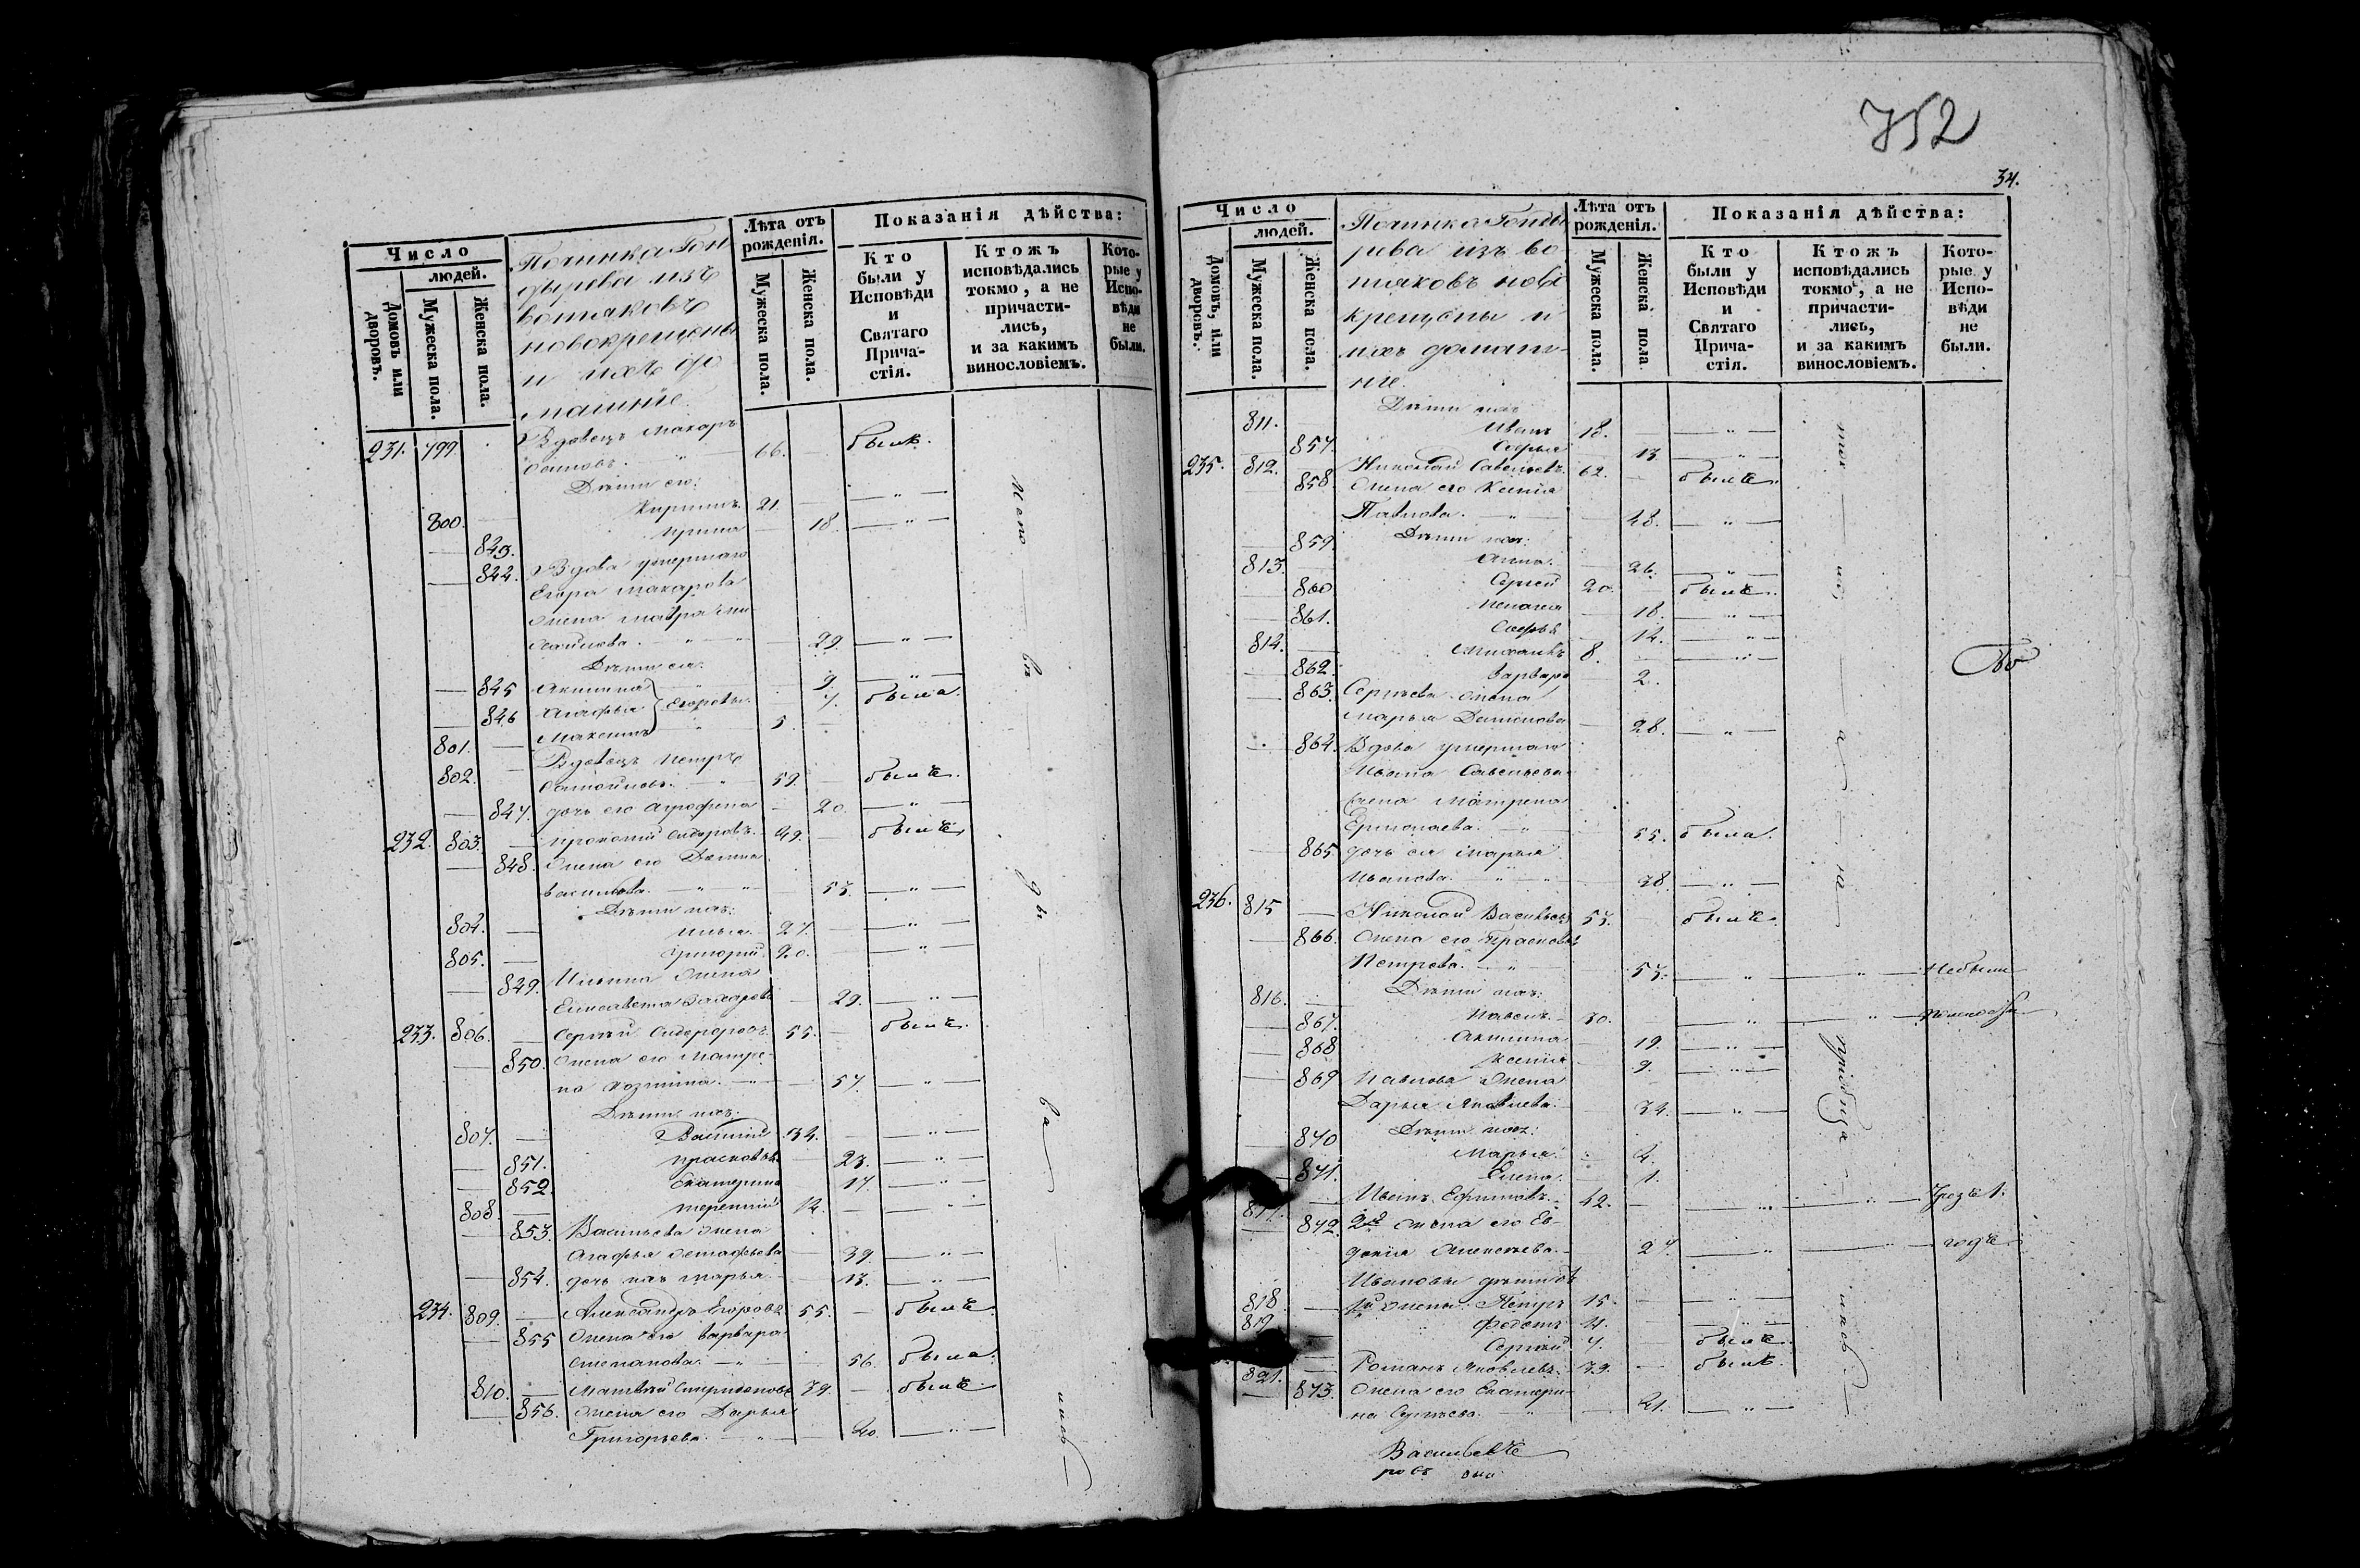 752
34.
Число
людей.
Домовъ или дворовъ.
Мужеска пола.
Женска пола.
Починка Гон
дырева изъ
вотяковъ
новокрещены
и ихъ до
машніе.
Лѣта отъ рожденія.
Мужеска пола.
Женска пола.
Показанія дѣйства:
Кто были у Исповѣди и Святаго Прича- стія.
Ктожъ исповѣдались токмо, а не причасти- лись, и за какимъ винословіемъ.
Кото- рые у Испо- вѣди не были.
231. 799 Вдовецъ Макаръ
66. былъ.
Дѣти его:
800. Кирилъ. 21. — " —
Ирина 18. — " —
843.
844. Вдова умершаго
Егора Макарова
жена Мавра Ми-
хайлова. 29. — " —
Дѣти ея:
845 Акилина 9. — " —
846 Агафья Егоровы. 7. была.
801. Максимъ 5
802. Вдовецъ Петръ
Самойловъ. 59. былъ.
847. дочь его Агрофена 20. — " —
232. 803. Прокопій Сидоровъ. 49. былъ
848. Жена его Домна
Васильева. 53. — " —
Дѣти ихъ:
804. Илья. 27. — " —
805. Григорій. 20. — " —
849. Ильина жена
Елисавета Захарова 29. — " —
233. 806. Сергѣй Сидоровъ. 55. былъ.
850. Жена его Матре-
на Козмина. 57. — " —
Дѣти ихъ.
807. Василій 34. — " —
851. Прасковья 23. — " —
852. Екатерина 17. — " —
808. Терентій 14. — " —
853. Васильева жена
Агафья Остафьева 39. — " —
854. дочь ихъ Марья. 13. — " —
234. 809. Александръ Егоровъ. 55. былъ.
855 Жена его Варвара
Степанова. 56. была.
810. Матвѣй Спиридоновъ 39. былъ.
856. Жена его Дарья
Григорьева. 40. — " —
Число
людей.
Домовъ, или дворовъ.
Мужеска пола.
Женска пола.
Починка Гонды
рева изъ во
тяковъ ново
крещены и
ихъ домаш-
ніе.
Лѣта отъ рожденія.
Мужеска пола.
Женска пола
Показанія дѣйства:
Кто были у Исповѣди и Святаго Прича- стія.
Ктожъ исповѣдались токмо, а не причасти- лись, и за какимъ винословіемъ.
Кото- рые у Испо- вѣди не были.
Дѣти ихъ
811. Иванъ 18. — " —
857. Софья 13. — " —
235. 812. Николай Савельевъ. 62. былъ.
858. Жена его Ксенія
Павлова. 48. — " —
Дѣти ихъ:
859. Анна. 26. — " —
813. Сергѣй 20. былъ.
860 Пелагея 18. — " —
861. Софья 14. — " —
814. Михаилъ 8. — " —
862. Варвара 2.
863. Сергѣева жена
Марья Дементьева 28. — " —
864. Вдова умершаго
Ивана Савельева
жена Матрена
Ермолаева. 55. была.
865 дочь ея Марья
Иванова. 38. — " —
236. 815 Николай Васильевъ 53. былъ.
866. Жена его Прасковья
Петрова. 53. — " — Небыли
Дѣти ихъ:
816. Павелъ. 30. — " —
867. Акилина 19. — " —
868 Ксенія 9. — " —
869 Павлова жена
Дарья Яковлева. 34. — " —
Дѣти ихъ:
870 Марья. 4.
871. Елена. 1.
817. Иванъ Ефимовъ. 42. — " —
872. 2я жена его Ев-
докія Алексѣева. 27. — " — годъ
Ивановы дѣти отъ
818 1й жены. Петръ 15. — " —
819 Федотъ 11. — " —
Сергѣй 7. былъ.
821. Романъ Яковлевъ. 39. былъ.
873. Жена его Екатери-
на Сергѣева. 41. — " —